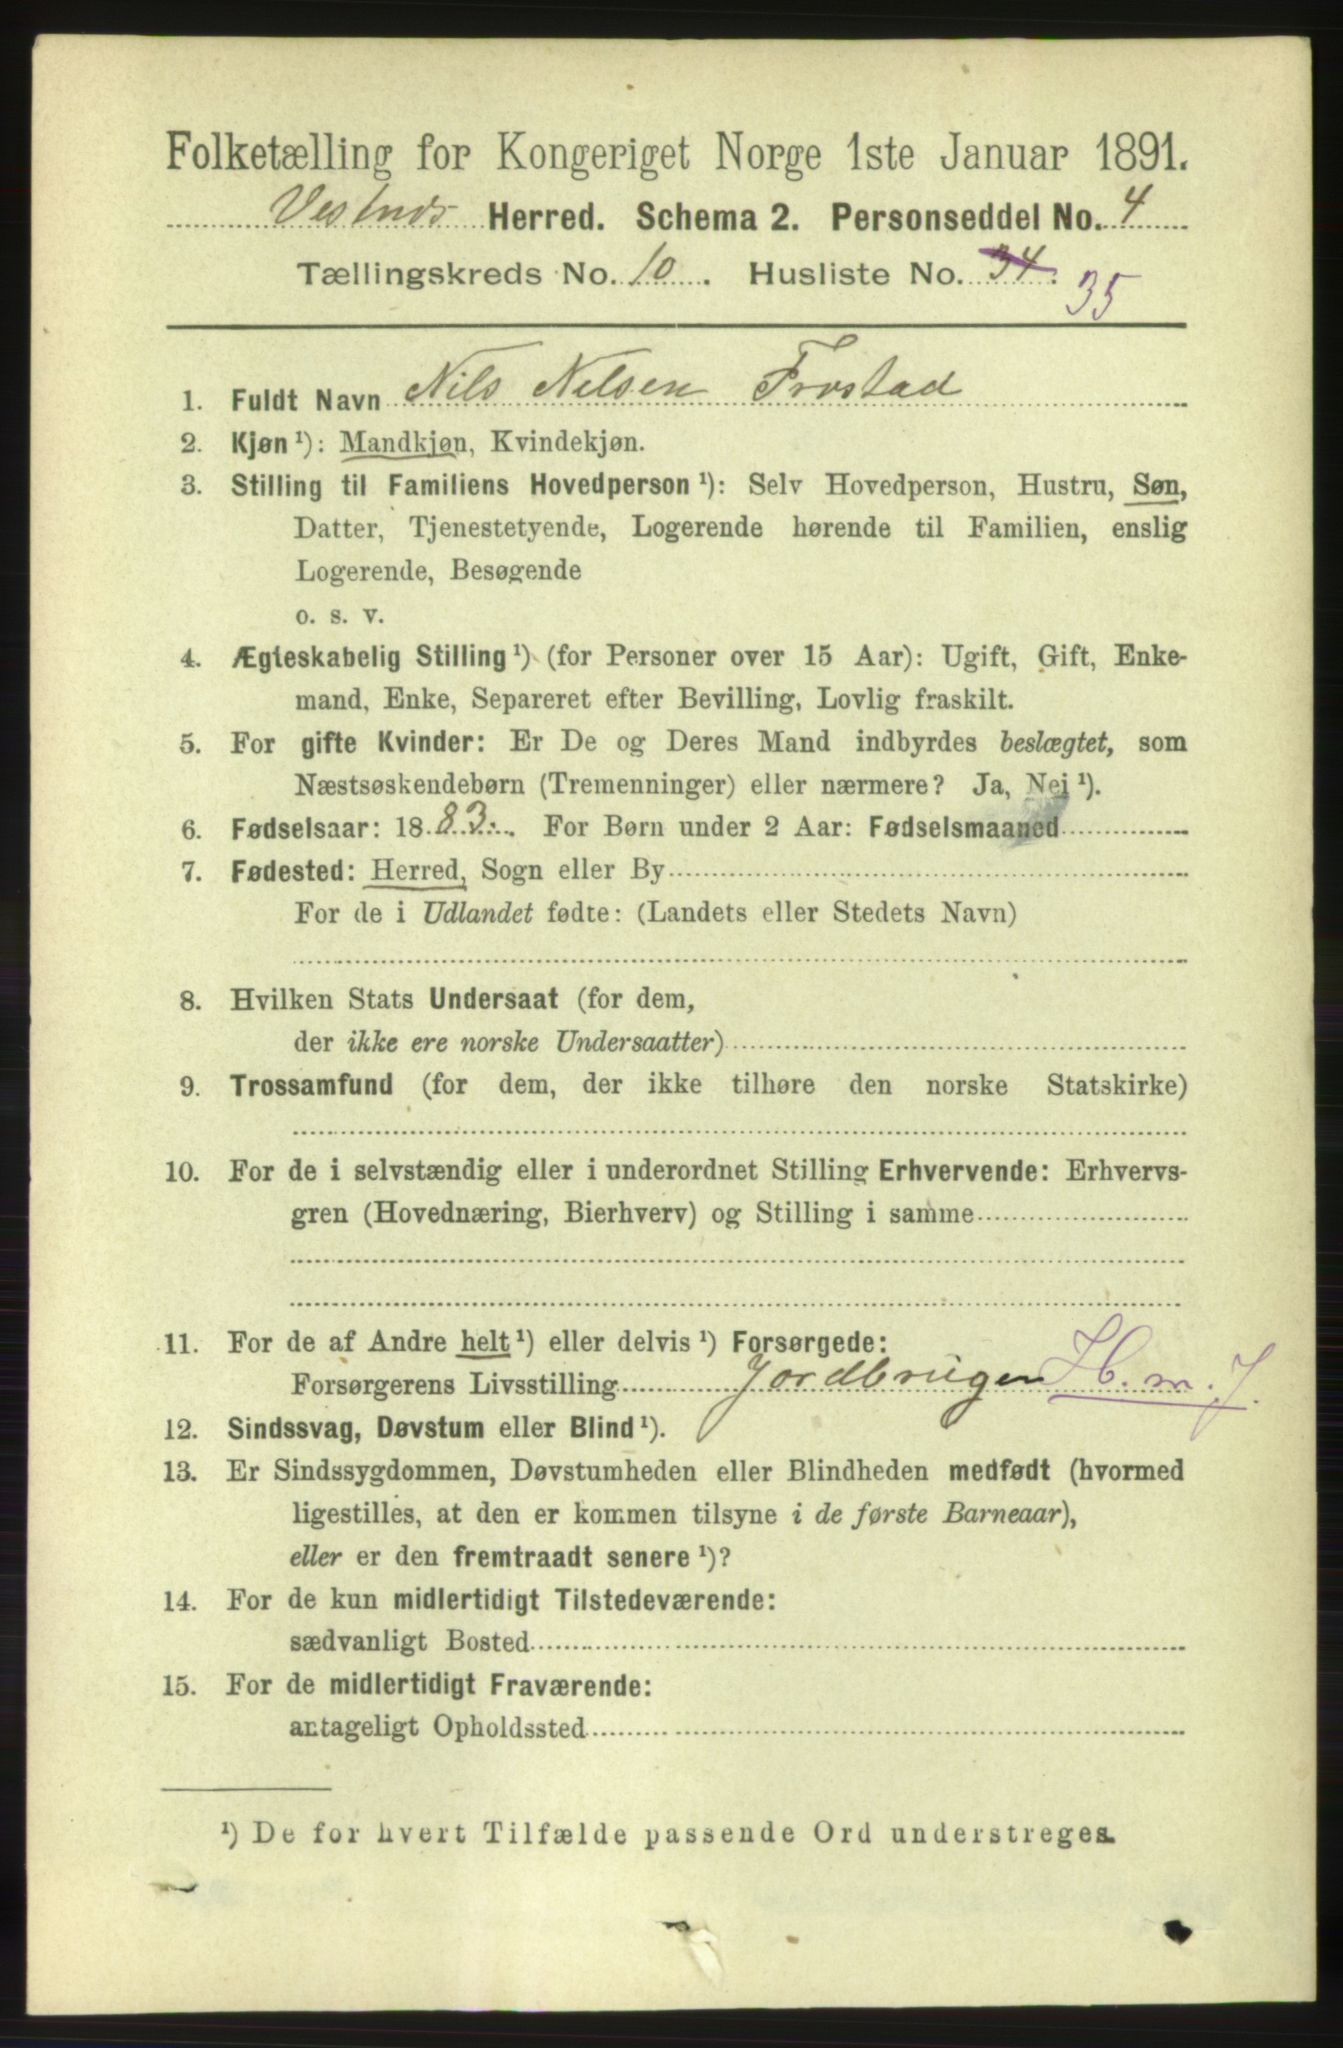 Folketælling for Kongeriget Norge 1ste Januar 1891.
Vestnes Herred. Schema 2. Personseddel No. 4
Tællingskreds No. 10. Husliste No. 34. 35
1. Fuldt Navn Nils Nelsen Frostad
2. Kjøn ¹): Mandkjøn, Kvindekjøn.
3. Stilling til Familiens Hovedperson ¹): Selv Hovedperson, Hustru, Søn,
Datter, Tjenestetyende, Logerende hørende til Familien, enslig
Logerende, Besøgende
o. s. v.
4. Ægteskabelig Stilling ¹) (for Personer over 15 Aar): Ugift, Gift, Enke-
mand, Enke, Separeret efter Bevilling, Lovlig fraskilt.
5. For gifte Kvinder: Er De og Deres Mand indbyrdes beslægtet, som
Næstsøskendebørn (Tremenninger) eller nærmere? Ja, Nei ¹).
6. Fødselsaar: 1883. For Børn under 2 Aar: Fødselsmaaned
7. Fødested: Herred, Sogn eller By
For de i Udlandet fødte: (Landets eller Stedets Navn)
8. Hvilken Stats Undersaat (for dem,
der ikke ere norske Undersaatter)
9. Trossamfund (for dem, der ikke tilhøre den norske Statskirke)
10. For de i selvstændig eller i underordnet Stilling Erhvervende: Erhvervs-
gren (Hovednæring, Bierhverv) og Stilling i samme
11. For de af Andre helt ¹) eller delvis ¹) Forsørgede:
Forsørgerens Livsstilling Jordbrugen H. m. J.
12. Sindssvag, Døvstum eller Blind ¹).
13. Er Sindssygdommen, Døvstumheden eller Blindheden medfødt (hvormed
ligestilles, at den er kommen tilsyne i de første Barneaar),
eller er den fremtraadt senere ¹)?
14. For de kun midlertidigt Tilstedeværende:
sædvanligt Bosted
15. For de midlertidigt Fraværende:
antageligt Opholdssted
¹) De for hvert Tilfælde passende Ord understreges.